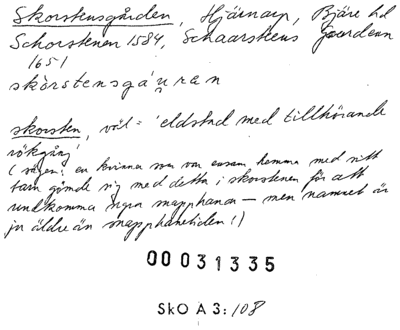 Skorstensgården, Hjärnarp, Bjäre hd
Schorstenen 1584, Schaarsteens gaarden
1651
skorstensgá'u̱ran
skorsten, väl = 'eldstad med tillhörande
rökgång'
(sägen: en kvinna som var ensam hemma med sitt
barn gömde sig med detta i skorstenen för att
undkomma några snapphanar — men namnet är
ju äldre än snapphanetiden!)
00031335
SkO A 3:108